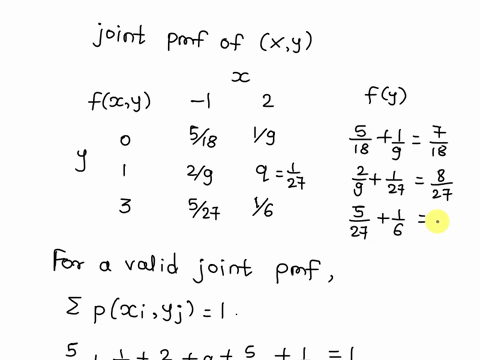 joint pmf of (x,y)
x
f(x,y) -1 2 f(y)
0 5/18 1/9 5/18 + 1/9 = 7/18
y 1 2/9 q = 1/27 2/9 + 1/27 = 8/27
3 5/27 1/6 5/27 + 1/6 =
For a valid joint pmf,
Σ p(xi, yj) = 1.
5 1 2 + q + 5 + 1 = 1